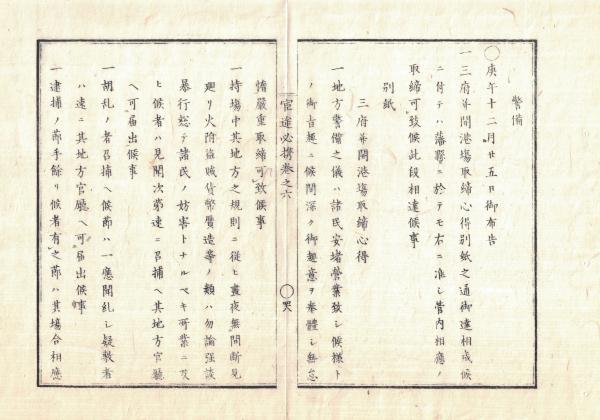 警備
〇庚午十二月廿五日御布告
一三府并開港場取締心得別紙之通御達相成候
ニ付テハ藩縣ニ於テモ右ニ准シ管内相應ノ
取締可致候此段相達候事
別紙
三府并開港場取締心得
一地方警備之儀ハ諸民安堵營業致シ候様ト
ノ御旨趣ニ候間深ク御趣意ヲ奉體シ無怠
官途必携巻之六
〇
惰嚴重取締可致候事
一持場中其地方之規則ニ從ヒ晝夜無間断見
廻リ火附盗賊贋貨幣贋造等ノ類ハ勿論强談
暴行総テ諸民ノ妨害トナルベキ所業ニ及
ヒ候者ハ見聞次第速ニ召捕ヘ其地方官廳
ヘ可届出候事
一胡乱ノ者召捕ヘ候節ハ一應問糺シ疑敷者
ハ速ニ其地方官廳ヘ可届出候事
一逮捕ノ節手餘リ候者有之節ハ其場合相應